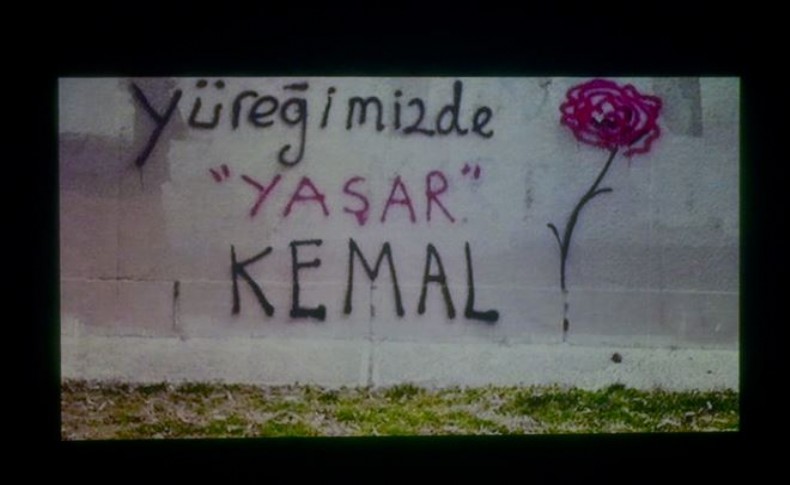 yüreğimizde
"YAŞAR"
KEMAL